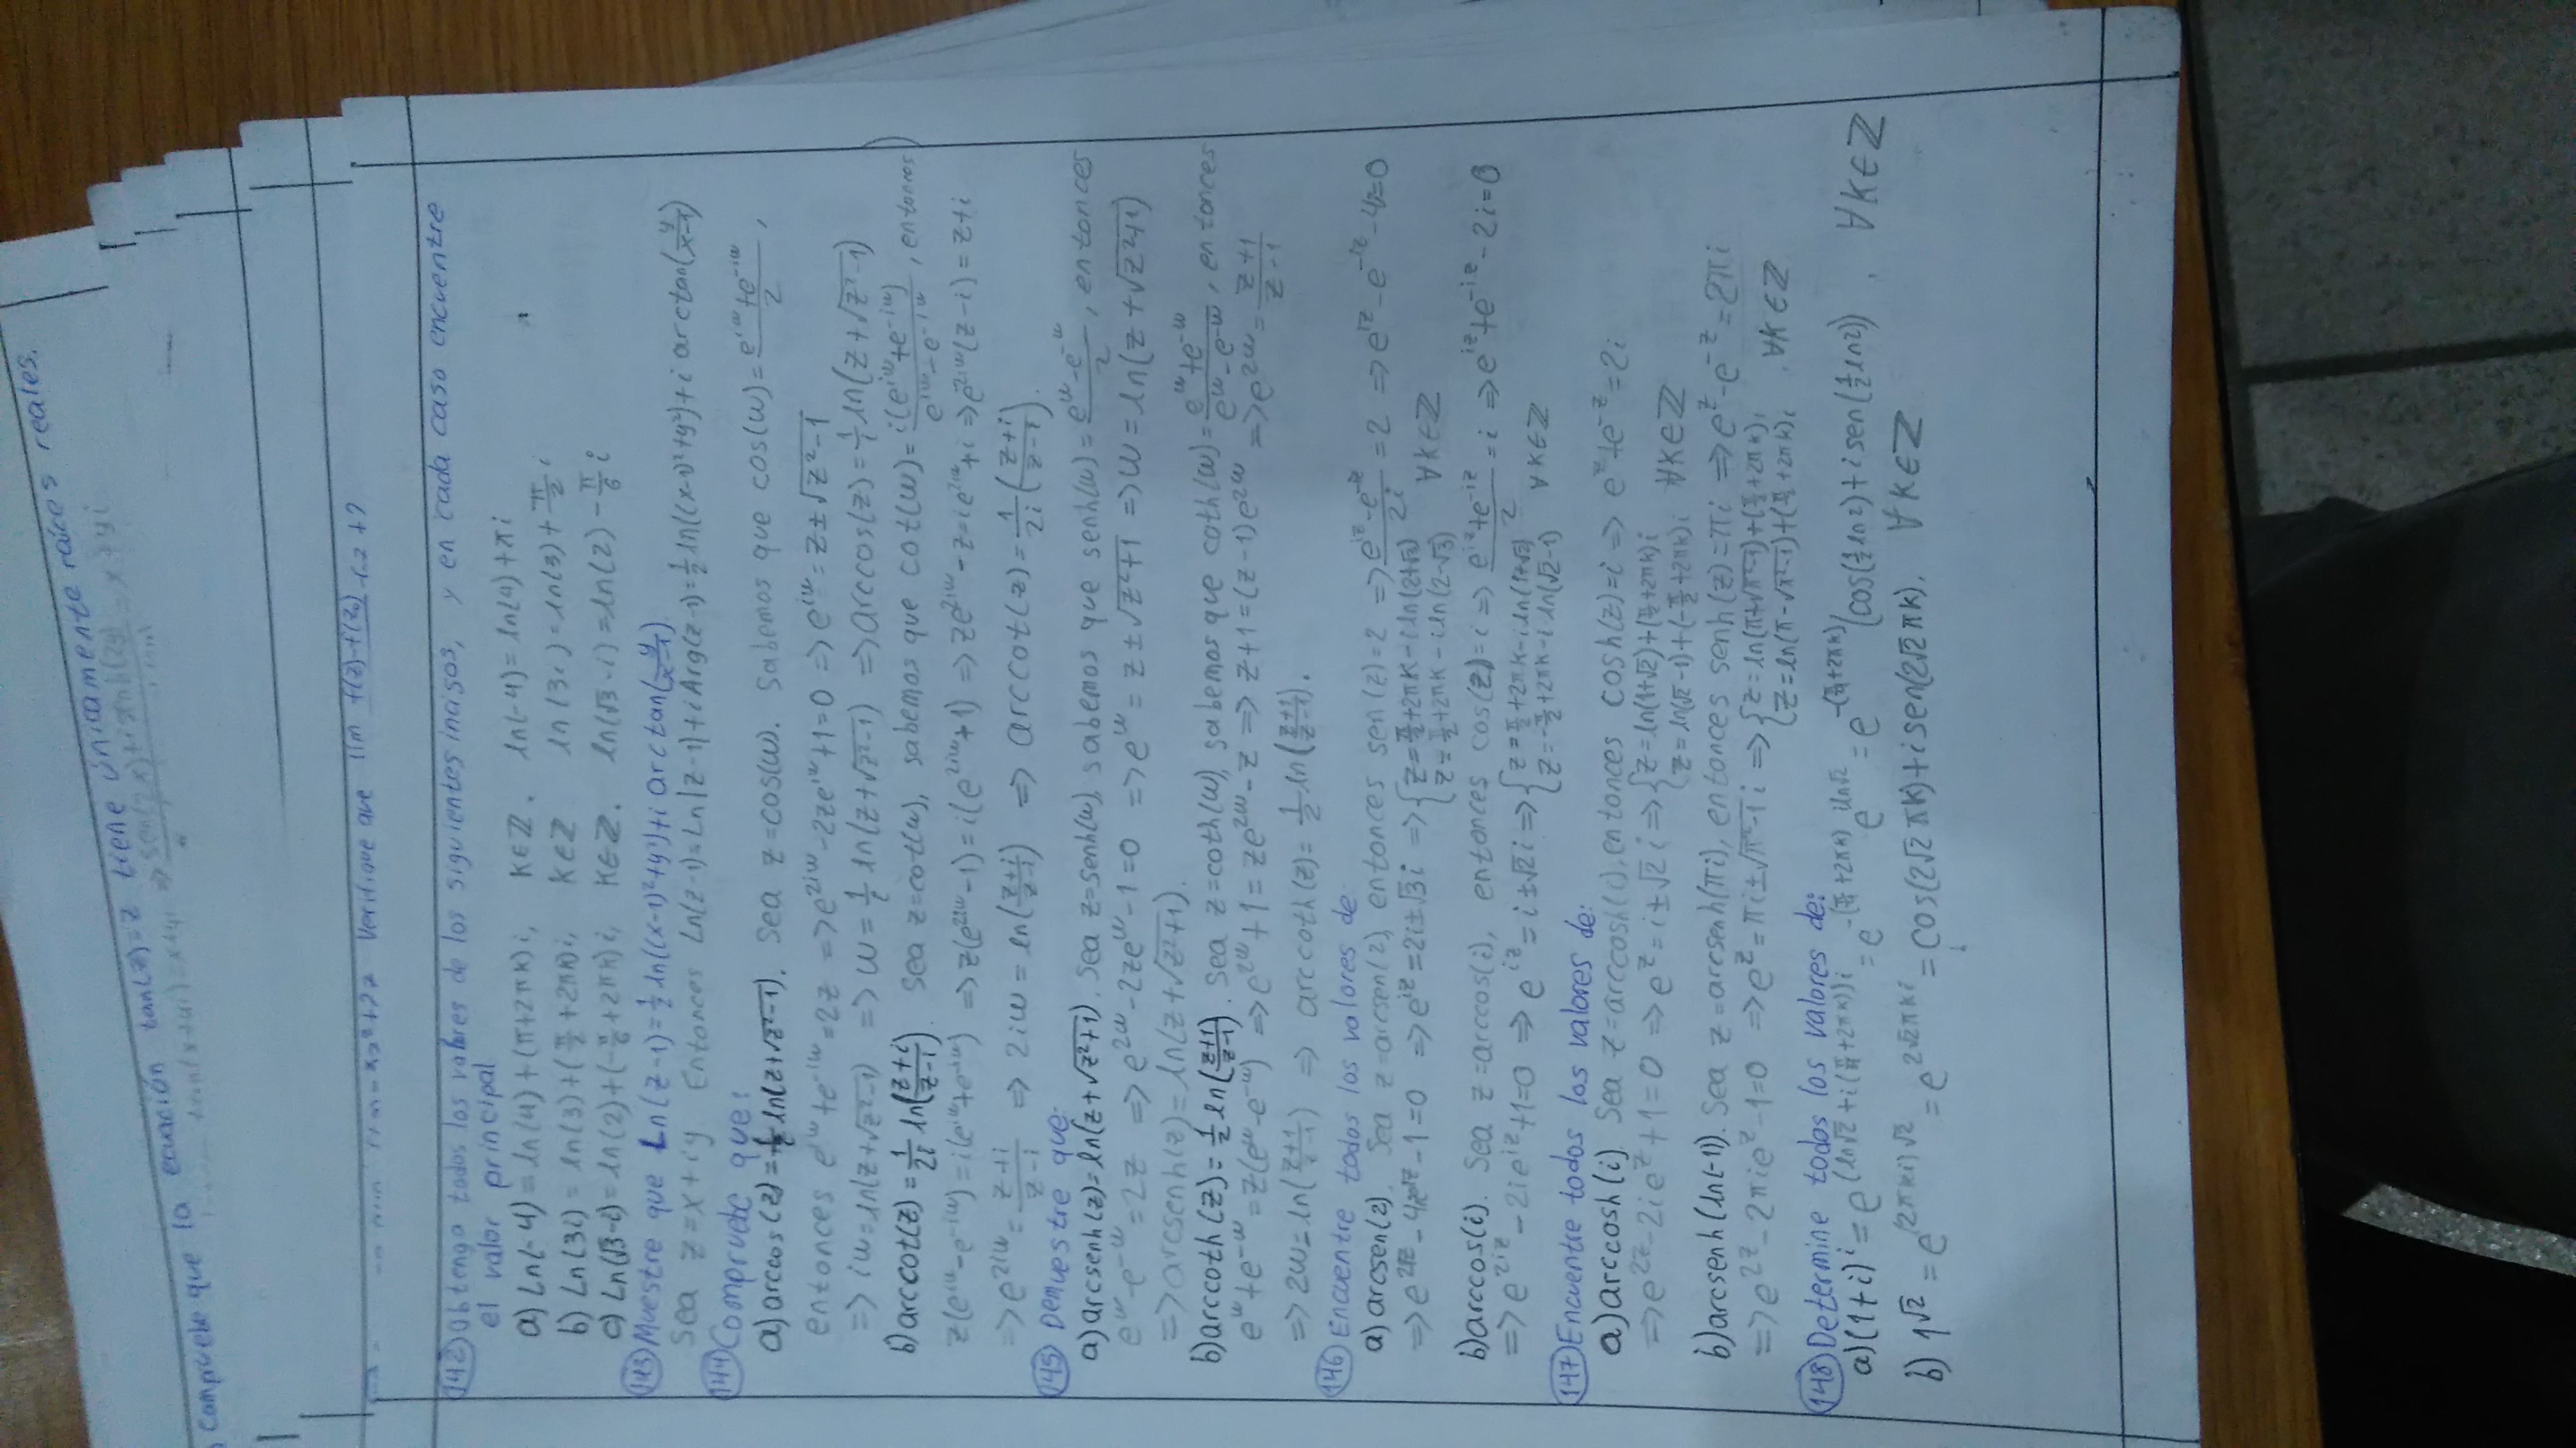 Compruebe que la ecuación tan(z)=z tiene únicamente raíces reales.
tan(x+yi)=x+yi => sen(2x)+i senh(2y) = x+yi
Verifique que lim f(z)-f(z₀)
142) Obtenga todos los valores de los siguientes incisos, y en cada caso encuentre
el valor principal
a) Ln(-4) = ln(4)+(π+2πk)i, k∈ℤ. ln(-4)=ln(4)+πi
b) Ln(3i) = ln(3)+(π/2+2πk)i, k∈ℤ ln(3i)=ln(3)+π/2 i
c) Ln(√3-i)=ln(2)+(-π/6+2πk)i, k∈ℤ. ln(√3-i)=ln(2)-π/6 i
143) Muestre que Ln(z-1)=1/2 ln((x-1)²+y²)+i arctan(y/x-1)
Sea z=x+iy. Entonces Ln(z-1)=Ln|z-1|+i Arg(z-1)=1/2 ln((x-1)²+y²)+i arctan(y/x-1)
144) Compruebe que:
a) arccos(z)=1/i ln(z+√z²-1). Sea z=cos(w). Sabemos que cos(w)=e^iw+e^-iw/2,
entonces e^iw+e^-iw=2z => e^2iw-2ze^iw+1=0 => e^iw=z±√z²-1
=> iw=ln(z+√z²-1) => w=1/i ln(z+√z²-1) => arccos(z)=1/i ln(z+√z²-1)
b) arccot(z)=1/2i ln(z+i/z-i). Sea z=cot(w), sabemos que cot(w)=i(e^iw+e^-iw)/e^iw-e^-iw, entonces
z(e^iw-e^-iw)=i(e^iw+e^-iw) => z(e^2iw-1)=i(e^2iw+1) => ze^2iw-z=ie^2iw+i => e^2iw(z-i)=z+i
=> e^2iw=z+i/z-i => 2iw=ln(z+i/z-i) => arccot(z)=1/2i(z+i/z-i).
145) Demuestre que:
a) arcsenh(z)=ln(z+√z²+1). Sea z=senh(w), sabemos que senh(w)=e^w-e^-w/2, entonces
e^w-e^-w=2z => e^2w-2ze^w-1=0 => e^w=z±√z²+1 => w=ln(z+√z²+1)
=> arcsenh(z)=ln(z+√z²+1).
b) arccoth(z)=1/2 ln(z+1/z-1). Sea z=coth(w), sabemos que coth(w)=e^w+e^-w/e^w-e^-w, entonces
e^w+e^-w=z(e^w-e^-w) => e^2w+1=ze^2w-z => z+1=(z-1)e^2w => e^2w=z+1/z-1
=> 2w=ln(z+1/z-1) => arccoth(z)=1/2 ln(z+1/z-1).
146) Encuentre todos los valores de
a) arcsen(2). Sea z=arcsen(2), entonces sen(z)=2 => e^iz-e^-iz/2i=2 => e^iz-e^-iz-4i=0
=> e^2iz-4ie^iz-1=0 => e^iz=2i±√3i => {z=π/2+2πk-i ln(2+√3)
z=π/2+2πk-i ln(2-√3) ∀k∈ℤ
b) arccos(i). Sea z=arccos(i), entonces cos(z)=i => e^iz+e^-iz/2=i => e^iz+e^-iz-2i=0
=> e^2iz-2ie^iz+1=0 => e^iz=i±√2i => {z=π/2+2πk-i ln(1+√2)
z=-π/2+2πk-i ln(√2-1) ∀k∈ℤ
147) Encuentre todos los valores de:
a) arccosh(i). Sea z=arccosh(i), entonces cosh(z)=i => e^z+e^-z=2i
=> e^2z-2ie^z+1=0 => e^z=i±√2i => {z=ln(1+√2)+(π/2+2πk)i
z=ln(√2-1)+(-π/2+2πk)i ∀k∈ℤ
b) arcsenh(ln(-1)). Sea z=arcsenh(πi), entonces senh(z)=πi => e^z-e^-z=2πi
=> e^2z-2πie^z-1=0 => e^z=πi±√π²-1 i => {z=ln(π+√π²-1)+(π/2+2πk)i
z=ln(π-√π²-1)+(π/2+2πk)i ∀k∈ℤ
148) Determine todos los valores de:
a) (1+i)^i=e^(ln√2+i(π/4+2πk))i=e^-(π/4+2πk) e^i ln√2=e^-(π/4+2πk)(cos(1/2 ln2)+i sen(1/2 ln2)). ∀k∈ℤ
b) 1^√2=e^(2πki)√2=e^2√2πki=cos(2√2πk)+i sen(2√2πk). ∀k∈ℤ